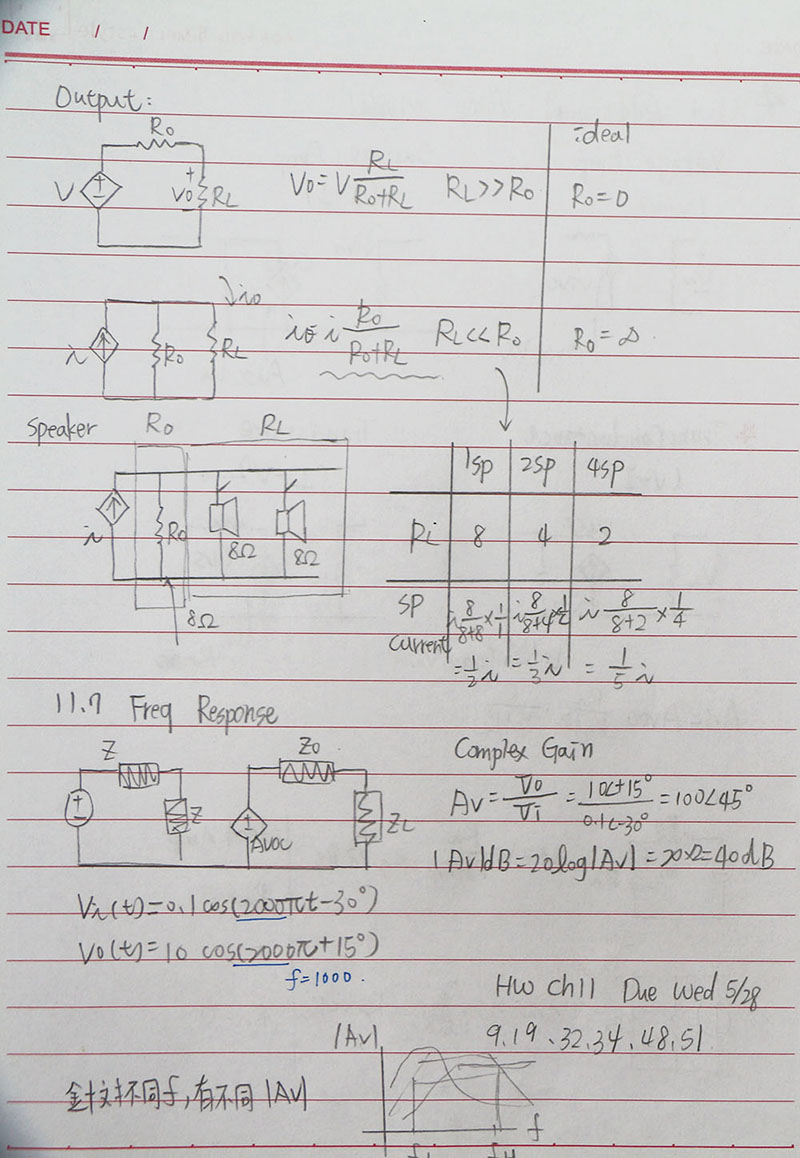 DATE / /
Output:
Ro
V
+
Vo
RL
Vo = V RL/(Ro+RL) RL>>Ro
ideal
Ro=0
i
Ro
RL
io
io= i Ro/(Ro+RL) RL<<Ro
Ro=∞
Speaker Ro RL
i
Ro
8Ω
8Ω
8Ω
1sp 2sp 4sp
Ri 8 4 2
SP current i 8/(8+8) × 1/1 i 8/(8+4) × 1/2 i 8/(8+2) × 1/4
= 1/2 i = 1/3 i = 1/5 i
11.7 Freq Response
Z
Z
Zo
Avoc
ZL
Complex Gain
Av = Vo/Vi = 10∠+15°/0.1∠-30° = 100∠45°
|Av|dB = 20log|Av| = 20×2=40dB
Vi(t)=0.1cos(2000πt-30°)
Vo(t)=10 cos(2000π+15°)
f=1000.
HW Ch11 Due Wed 5/28
9.19、32.34、48.51
|Av|
f
fL
fH
針對不同f,有不同|Av|